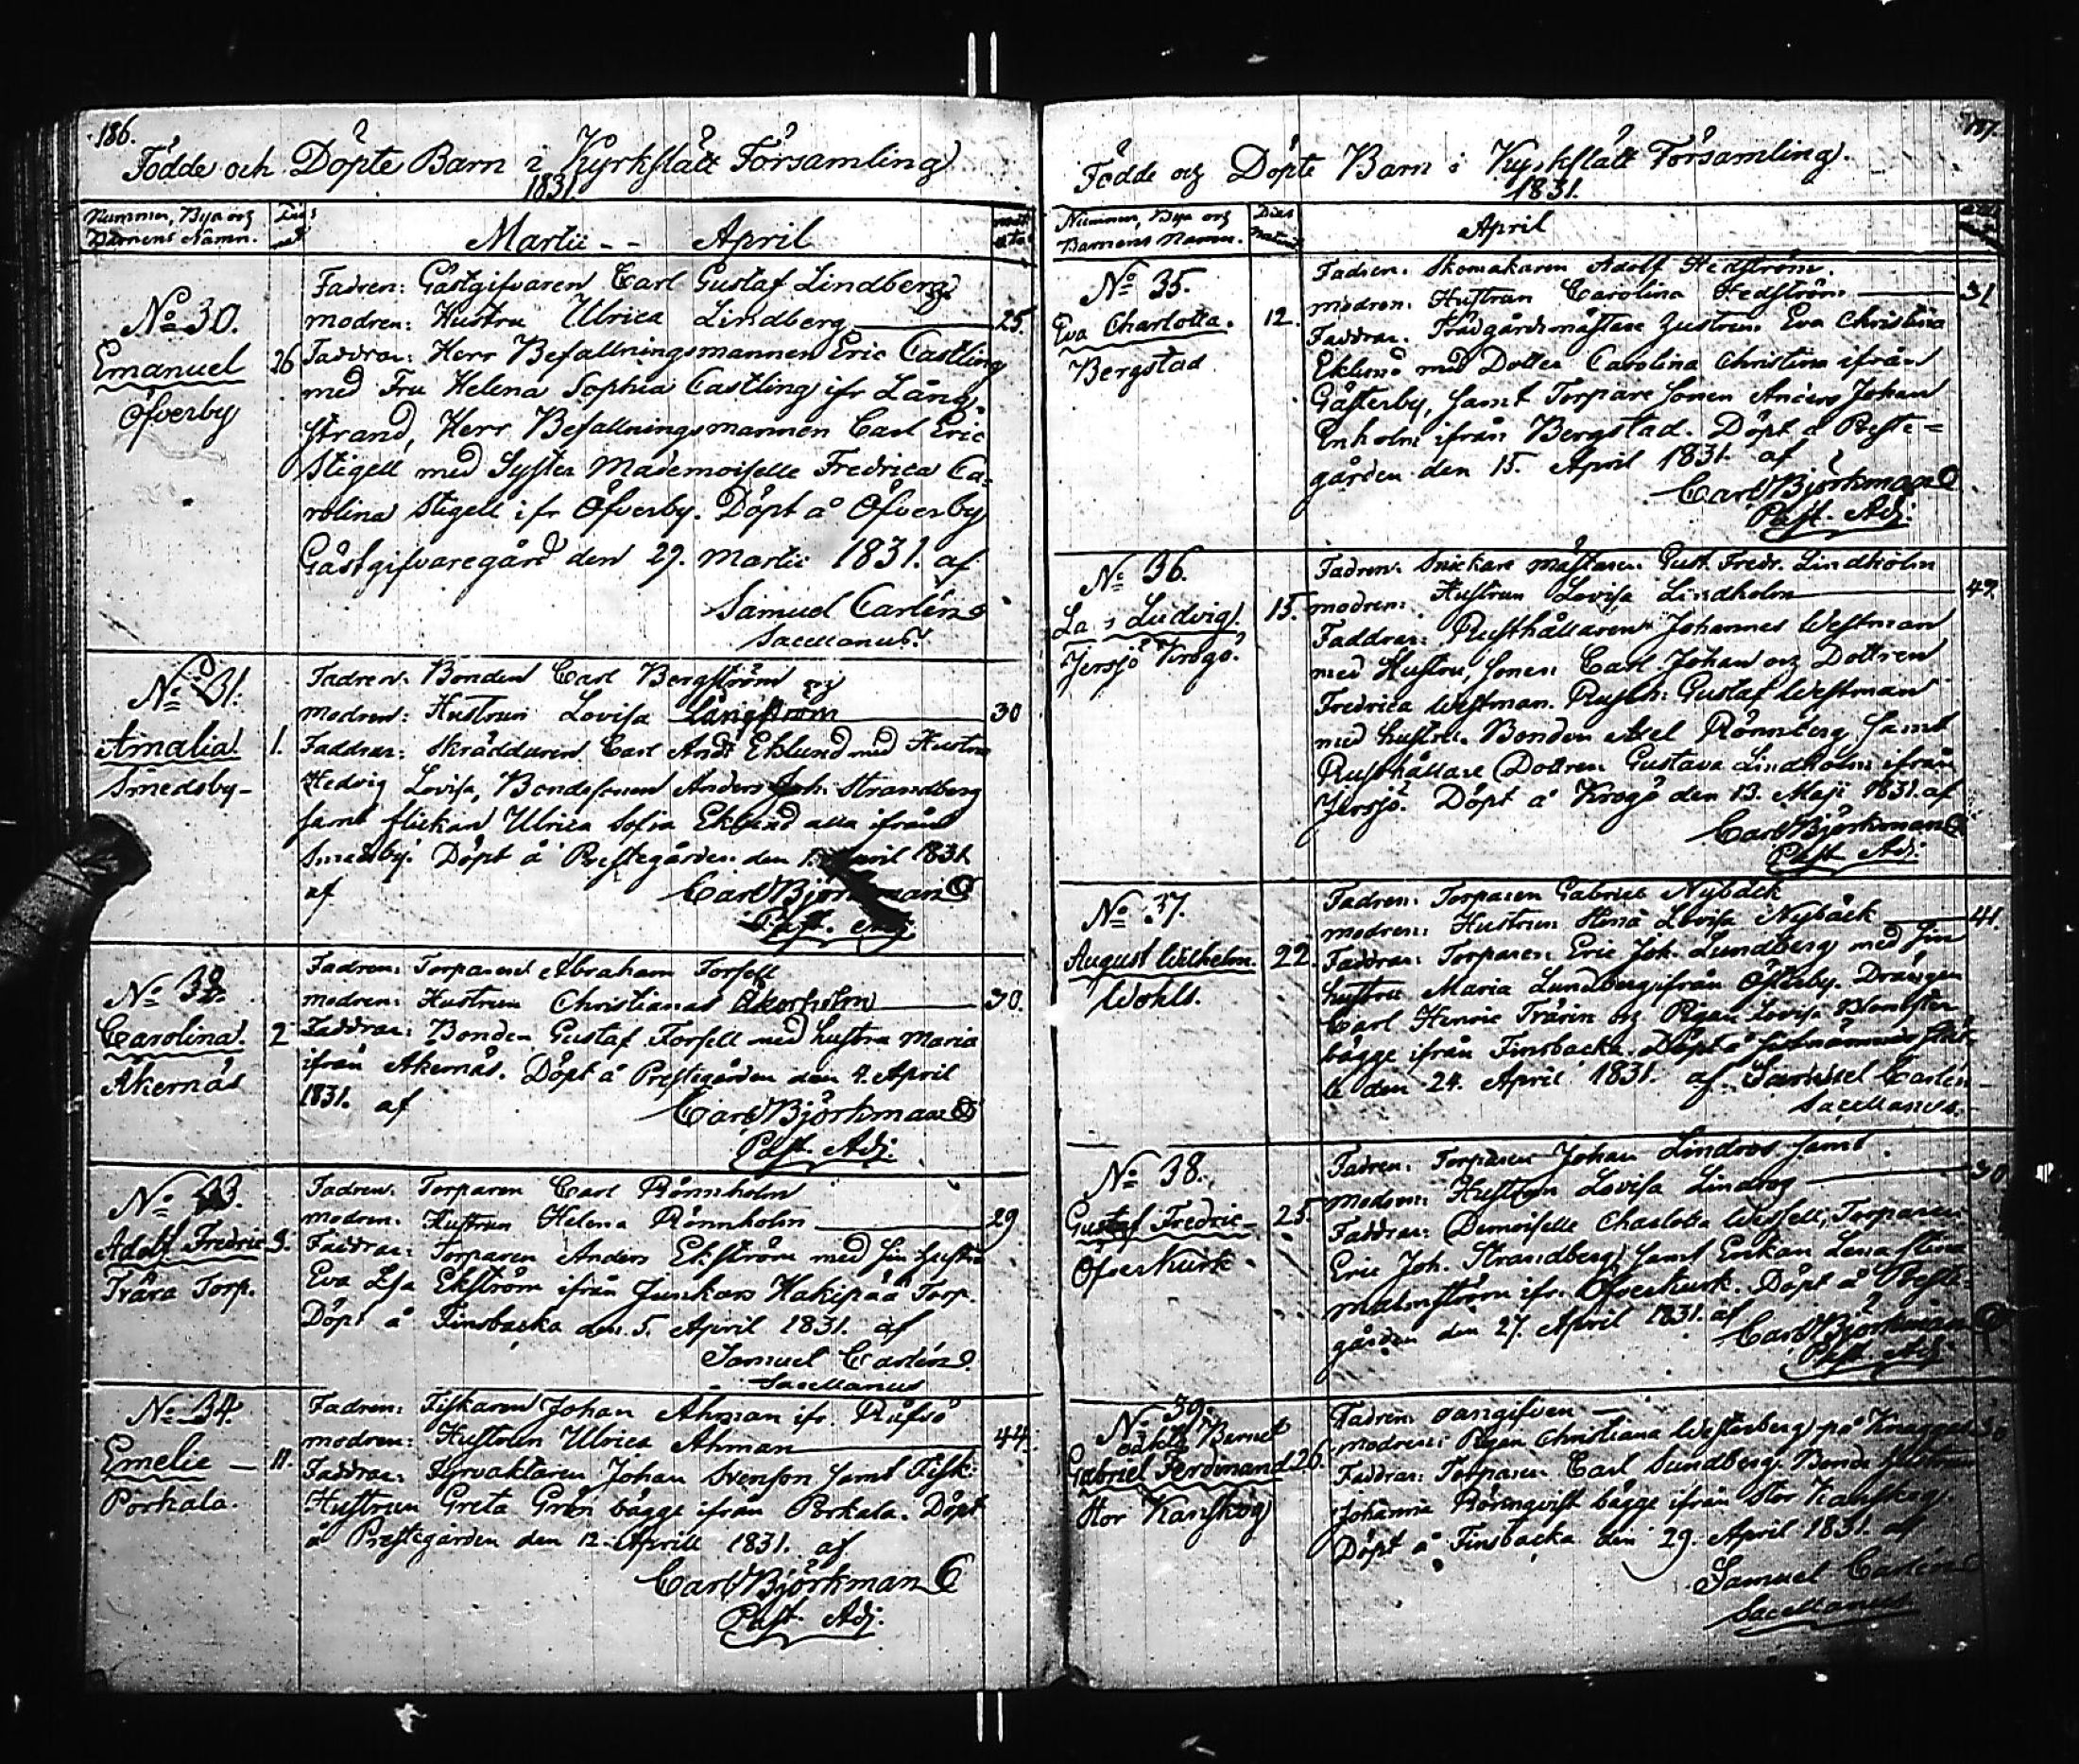 186.
Födde och Döpte Barn i Kyrkslätt Församling
1831.
Nummer, Bya och
Barnens Namn.
Martii -- April
No 30.
Emanuel
Öfverby
26
Fadren: Gästgifvaren Carl Gustaf Lindberg
modren: Hustru Ulrica Lindberg 25.
Faddrar: Herr Befallningsmannen Eric Castling
med Fru Helena Sophia Castling ifr Lång
strand, Herr Befallningsmannen Carl Eric
Stigell med Syster Mademoiselle Fredrica Ca=
rolina Stigell ifr Öfverby. Döpt å Öfverby
Gästgifvaregård den 27. Martii 1831. af
Samuel Carlén
Sacellanus.
No 31.
Amalia
Smedsby-
1.
Fadren: Bonden Carl Bergström och
modren: Hustrun Lovisa Långström 30
Faddrar: Skräddaren Carl Andr Eklund med Hustru
Hedvig Lovisa, Bondesonen Anders Joh. Strandberg
samt flickan Ulrica Sofia Eklund alla ifrån
Smedsby. Döpt å Prestegården den April 1831.
af Carl Björkman
Past. Adj.
No 32.
Carolina.
Åkernäs
2
Fadren: Torparen Abraham Forsell
modren: Hustrun Christiana Åkerholm 30.
Faddrar: Bonden Gustaf Forsell med hustru Maria
ifrån Åkernäs. Döpt å Prestegården den 4. April
1831. af Carl Björkman
Past. Adj.
No 33.
Adolf Fredric
Trära Torp.
3.
Fadren: Torparen Carl Rönnholm
modren: Hustrun Helena Rönnholm 29
Faddrar: Torparen Anders Ekström med sin hustru
Eva Lisa Ekström ifrån Junkars Hakipää Torp.
Döpt å Finsbacka den 5. April 1831. af
Samuel Carlén
Sacellanus
No 34.
Emelie
Porkala.
11.
Fadren: Fiskaren Johan Åhman ifr. Räfsö
modren: Hustrun Ulrica Åhman 44.
Faddrar: Fyrvaktaren Johan Svenson samt Fisk.
Hustrun Greta Grön bägge ifrån Porkala. Döpt
å Prestegården den 12. Aprill 1831. af
Carl Björkman
Past. Adj.
187.
Födde och Döpte Barn i Kyrkslätt Församling.
1831.
Nummer, Bya och
Barnens Namn.
Dies
April
No 35.
Eva Charlotta.
Bergstad
12.
Fadren: Skomakaren Adolf Hedström.
modren: Hustrun Carolina Hedström 31
Faddrar: Trädgårdsmästare hustrun Eva Christina
Eklund med Dotter Carolina Christina ifrån
Gästerby, samt Torpare Sonen Anders Johan
Enholm ifrån Bergstad. Döpt å Preste=
gården den 15. April 1831. af
Carl Björkman
Past. Adj.
No 36.
Ludvig.
Jersjö Krogö.
15.
Fadren: Snickare mästaren Gust. Fredr. Lindholm
modren: Hustrun Lovisa Lindholm 42.
Faddrar: Rusthållaren Johannes Westman
med Hustru, Sonen Carl Johan och Dottren
Fredrica Westman. Rusth: Gustaf Westman
med hustru. Bonden Axel Rönnberg samt
Rusthållare Dottren Gustava Lindholm ifrån
Jersjö. Döpt å Krogö den 13. Maji 1831. af
Carl Björkman
Past. Adj.
No 37.
August Wilhelm.
Wohls.
22.
Fadren: Torparen Gabriel Nybäck
modren: Hustrun Lovisa Nybäck 41.
Faddrar: Torparen Eric Joh. Lundberg med sin
hustru Maria Lundberg ifrån Österby. Drängen
Carl Henric Trärin och Pigan Lovisa
bägge ifrån Finsbacka. Döpt å
den 24. April 1831. af Samuel Carlén
Sacellanus.
No 38.
Gustaf Fredric
Öfverkurk
25.
Fadren: Torparen Johan Lindros samt
modren: Hustrun Lovisa Lindros 30
Faddrar: Demoiselle Charlotta Wessell, Torparen
Eric Joh. Strandberg samt Enkan Lena Stina
Malmström ifr. Öfverkurk. Döpt å Preste=
gården den 27. April 1831. af Carl Björkman
Past. Adj.
No 39.
oäkta Barnet
Gabriel Ferdinand
Stor Kanskog
26.
Fadren: oangifven
modren: Pigan Christiana Westerberg på
Faddrar: Torparen Carl Sundberg. Bonde hustrun
Johanna Rörnqvist bägge ifrån Stor Kanskog
Döpt å Finsbacka den 29. April 1831. af
Samuel Carlén
Sacellanus